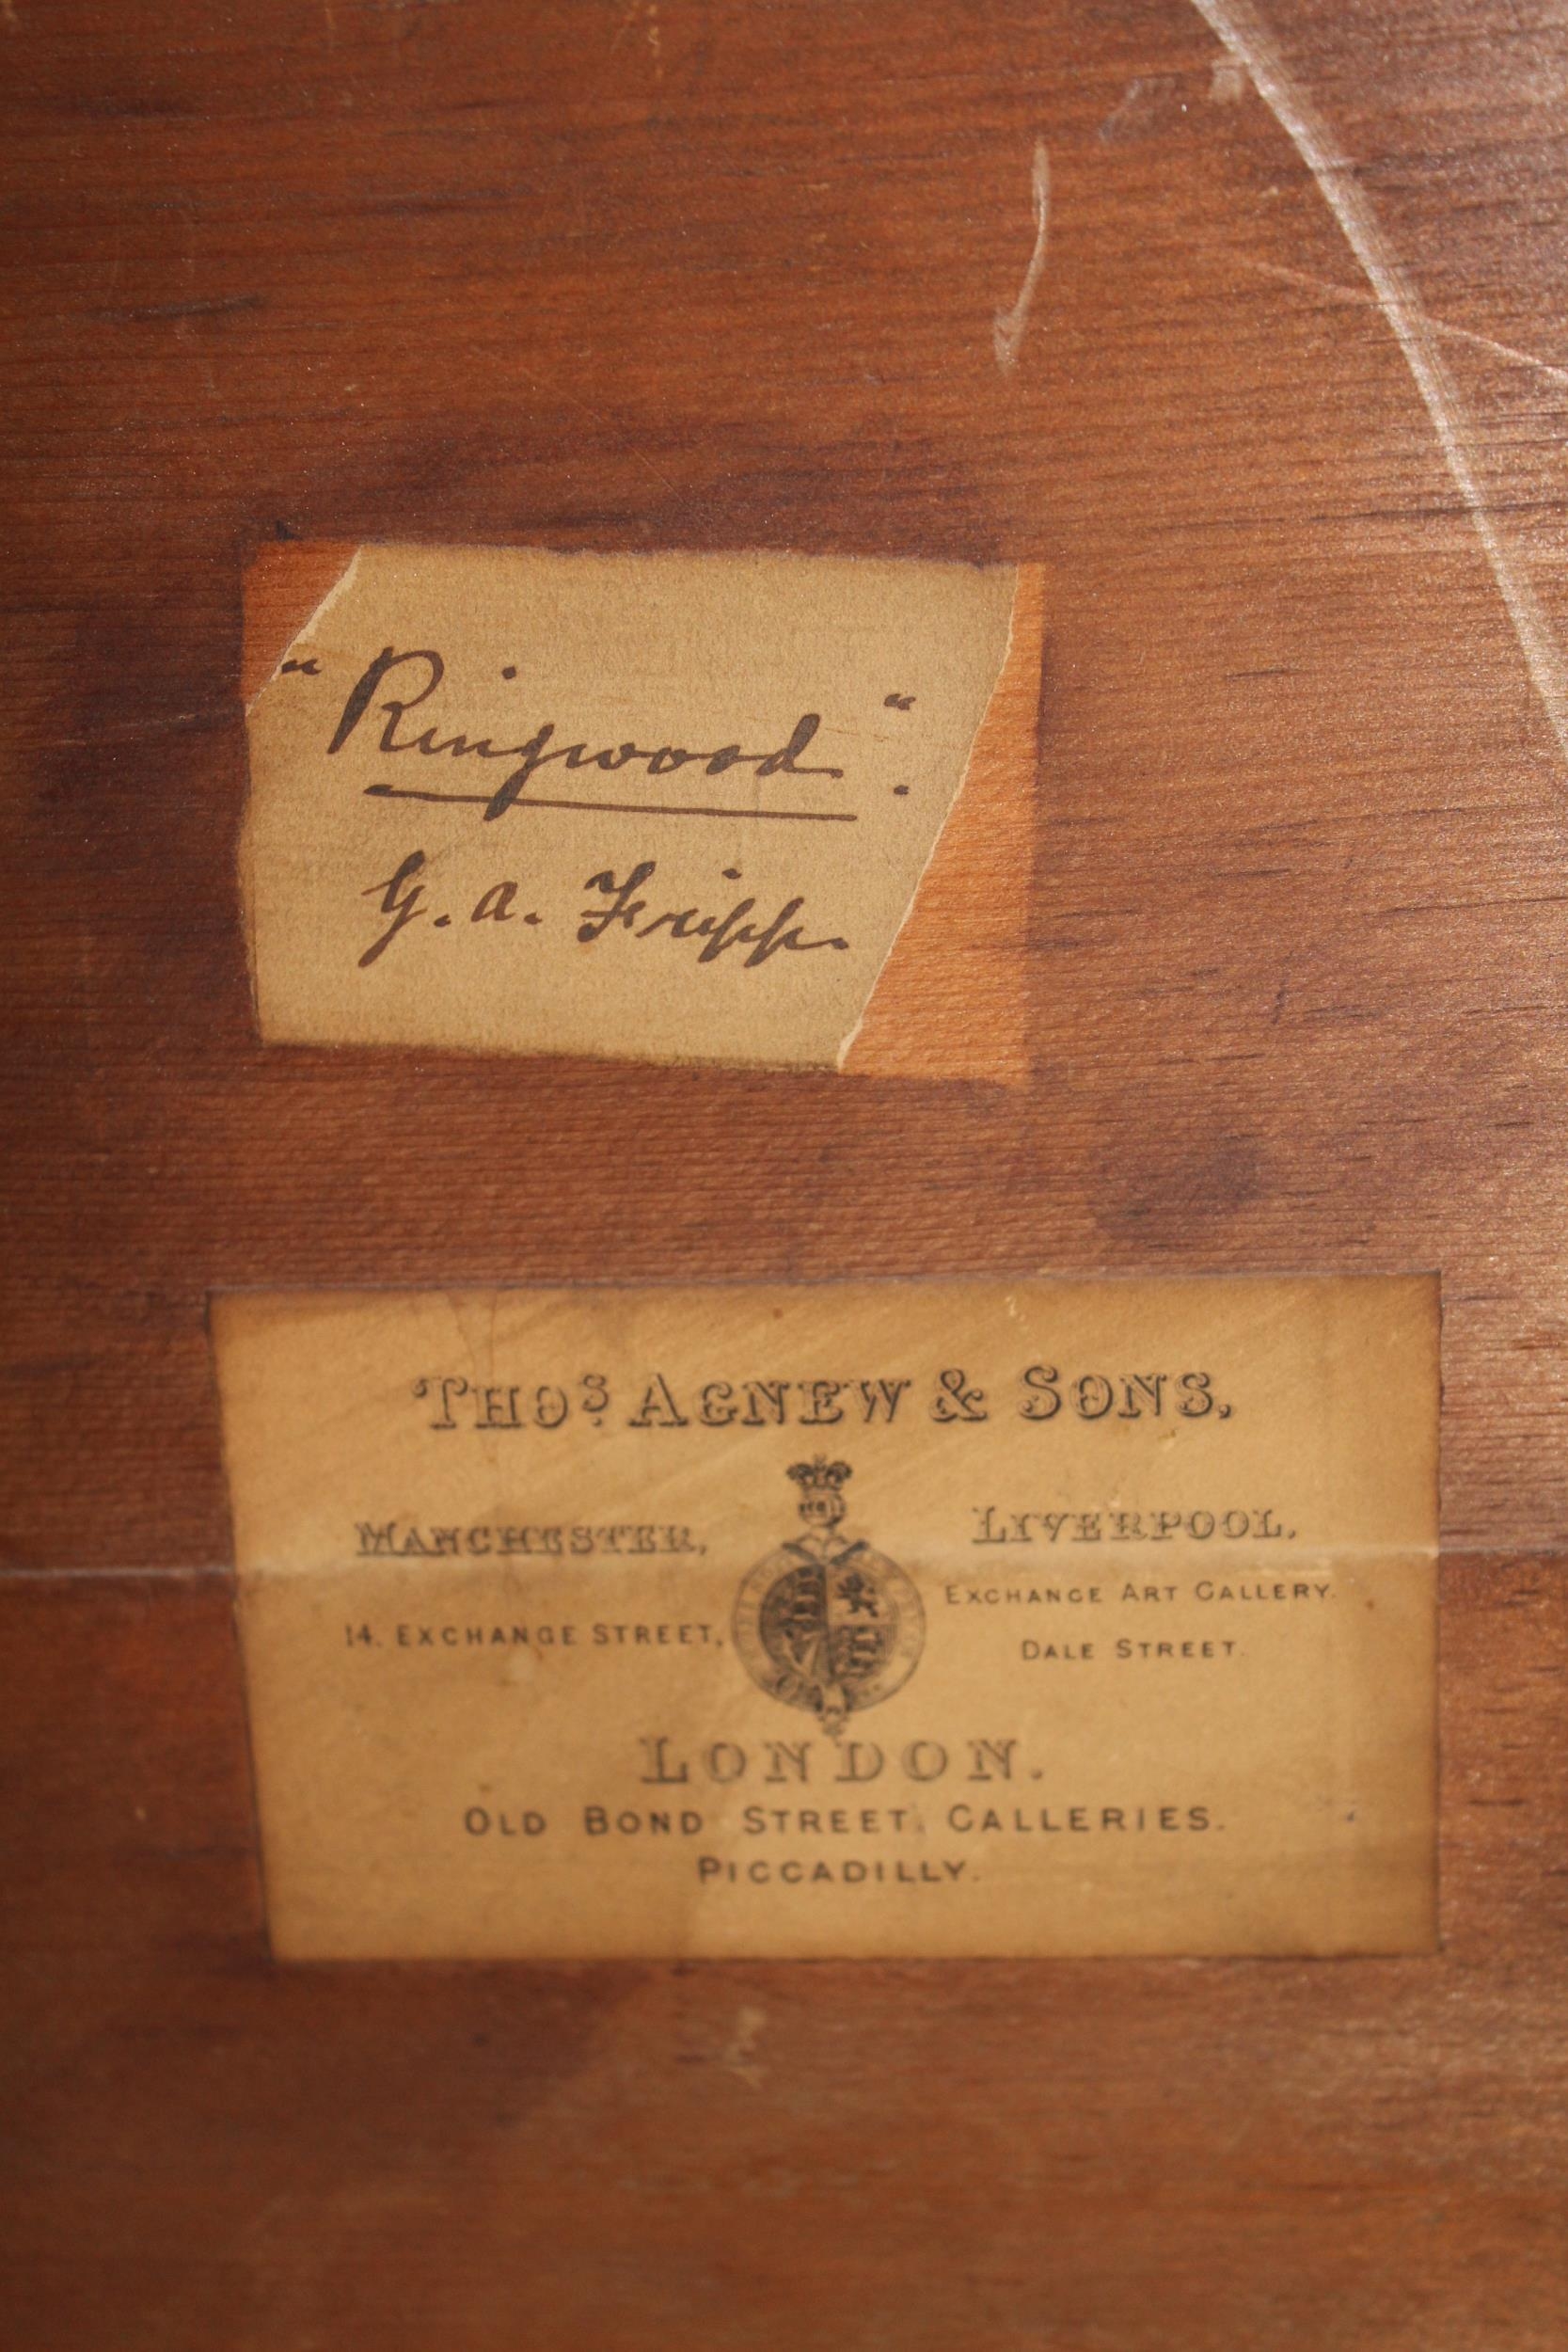 "Ringwood".
G. A. Fripp.
THOS AGNEW & SONS,
MANCHESTER,
14. EXCHANGE STREET,
LIVERPOOL.
EXCHANGE ART GALLERY.
DALE STREET.
LONDON.
OLD BOND STREET. GALLERIES.
PICCADILLY.